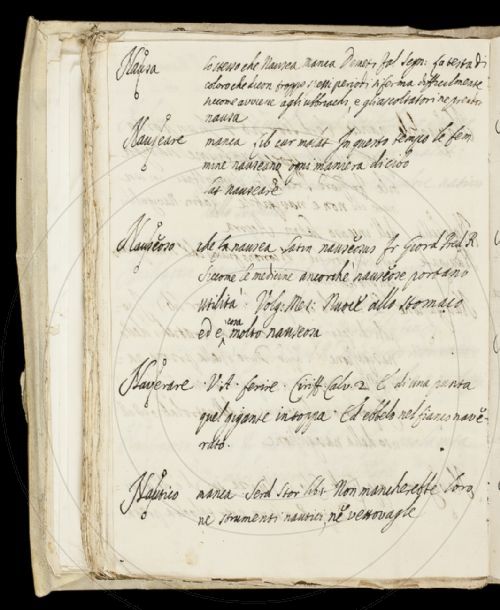 Nausa lo stesso che Nausea manca Demetr: fal Segn: la testa di
coloro che dicon troppo spessi periodi si ferma difficilmente
siccome avviene agli ubbriachi, e gli ascoltatori ne prendon
nausa
Nauseare manca lib cur malat In questo tempo le fem
mine nauseano ogni maniera di cibo
Lat nauseare
Nauseoso che fa nausea Latin nauseosus Fr Giord Pred R.
Siccome le medicine ancorche nauseose portano
utilità Volg: Mes: Nuoce allo stomaco
ed e cosa molto nauseosa
Naverare V.A. ferire Ciriff Calv. 2 E di una punta
quel gigante intoppa Ed ebbelo nel fianco nave
rato.
Nautico manca Serd Stor lib 1 Non mancherebbe loro
ne strumenti nautici, ne vettovagle